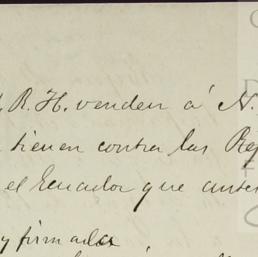 R. H. venden á N.
tienen contra las Rep
el Ecuador que ante
y firmadas